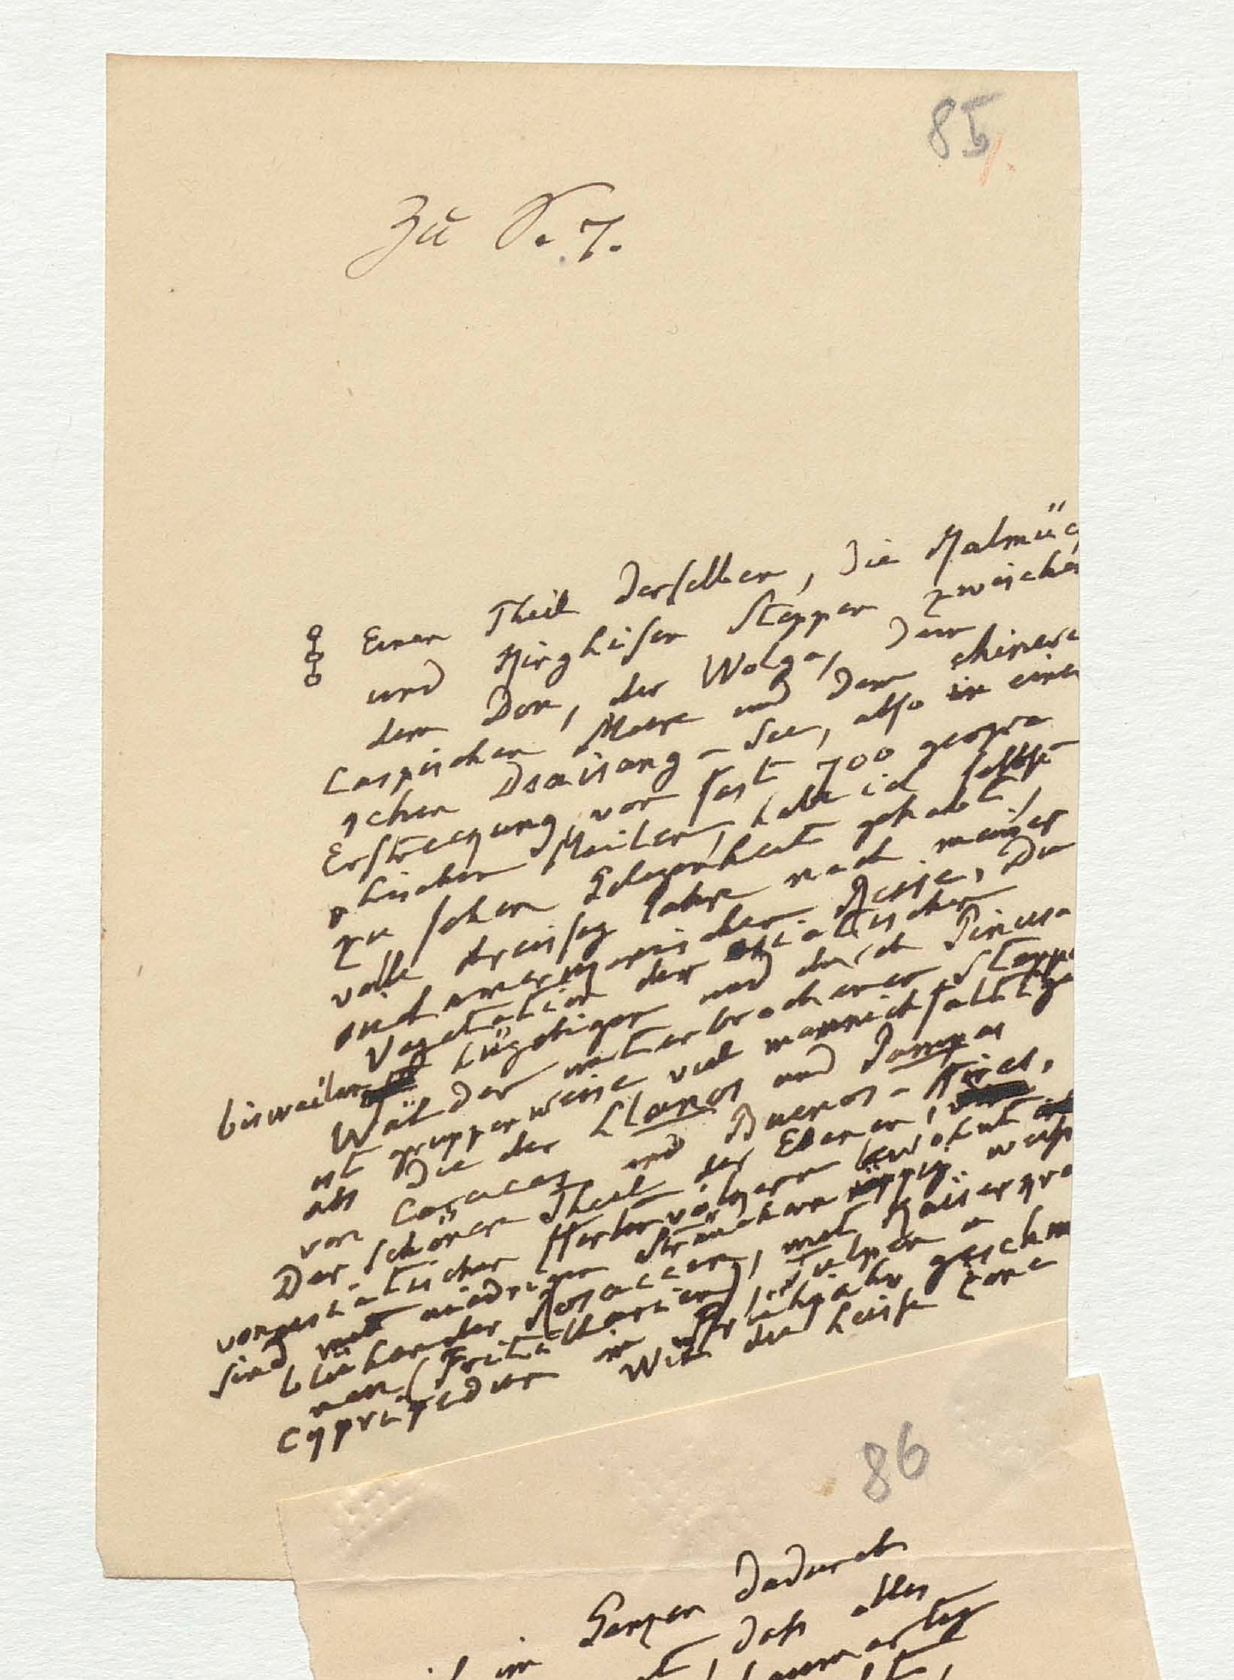 85
Zu S. 7.
Einen Theil derselben, die Kalmück
und Kirghisen Steppen zwischen
dem Don, der Wolga, dem
Caspischen Meere und dem chinesi
schen Dsaisang-See, also in einer
Erstreckung von fast 700 geogra
phischen Meilen, habe ich selbst
zu sehen Gelegenheit gehabt,
volle dreissig Jahre nach meiner
südamerikanischen Reise. Die
Vegetation der asiatischen
bisweilen hügeligen und durch Pinus
Wälder unterbrochenen Steppen
ist gruppenweise viel mannichfaltiger
als die der Llanos und Pampas
von Caracas und Buenos-Aires.
Der schönere Theil der Ebenen,
von asiatischen Hirtenvölkern bewohnt ist
sind mit niedrigen Sträuchern üppig weiss
blühender Rosaceen, mit Kaiserkro
nen (Fritillarien), Tulpen u
Cypripedien im Frühjahr geschm
Wie die heisse Zone
86
im Ganzen dadurch
, dass alles
baumartig